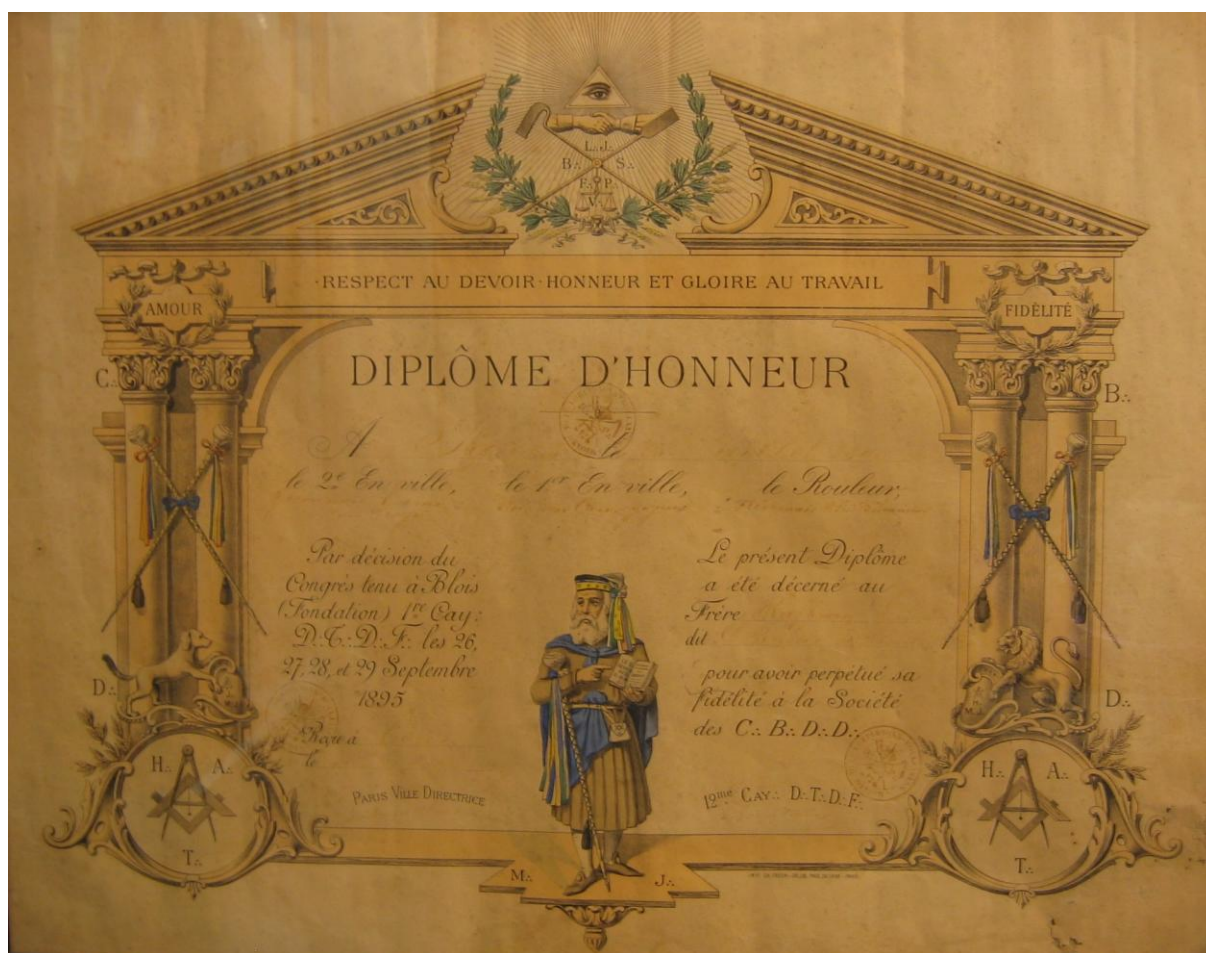 L∴ J∴
B∴ S∴
F∴ P∴
V∴
·RESPECT AU DEVOIR·HONNEUR ET GLOIRE AU TRAVAIL
AMOUR
FIDÉLITÉ
C∴
B∴
DIPLÔME D'HONNEUR
A
le 2e En ville, le 1er En ville, le Rouleur,
Par décision du
Congrès tenu à Blois
(Fondation) 1re Cay:
D∴T∴D∴F∴ les 26,
27, 28, et 29 Septembre
1895
Reçu à
le
Le présent Diplôme
a été décerné au
Frère
dit
pour avoir perpétué sa
fidélité à la Société
des C∴ B∴ D∴D∴
D∴
D∴
PARIS VILLE DIRECTRICE
12me CAY∴ D∴T∴D∴F∴
H∴ A∴
T∴
H∴ A∴
T∴
M∴ J∴